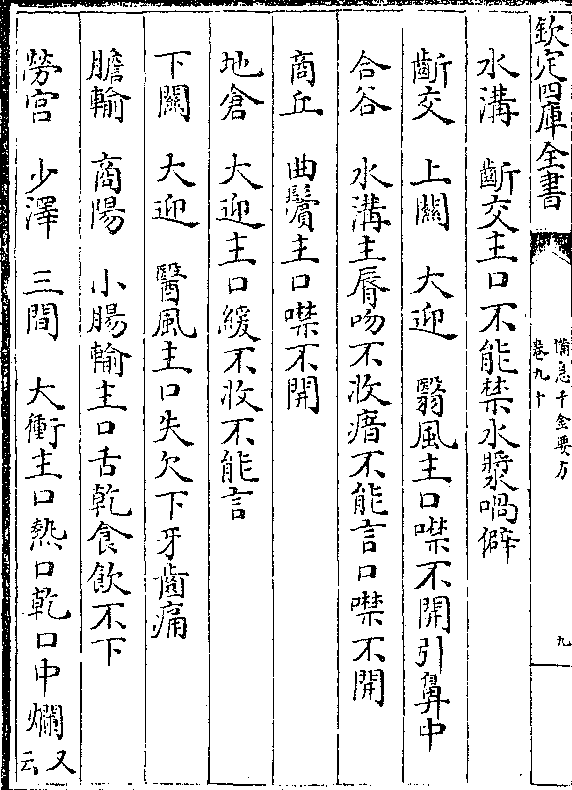 欽定四庫全書
備急千金要方
卷九十
九
水溝　齗交主口不能禁水漿喎僻
齗交　上關　大迎　翳風主口噤不開引鼻中
合谷　水溝主唇吻不收瘖不能言口噤不開
商丘　曲鬢主口噤不開
地倉　大迎主口緩不收不能言
下關　大迎　翳風主口失欠下牙齒痛
膽輸　商陽　小腸輸主口舌乾食飲不下
勞宮　少澤　三間　大衝主口熱口乾口中爛又云